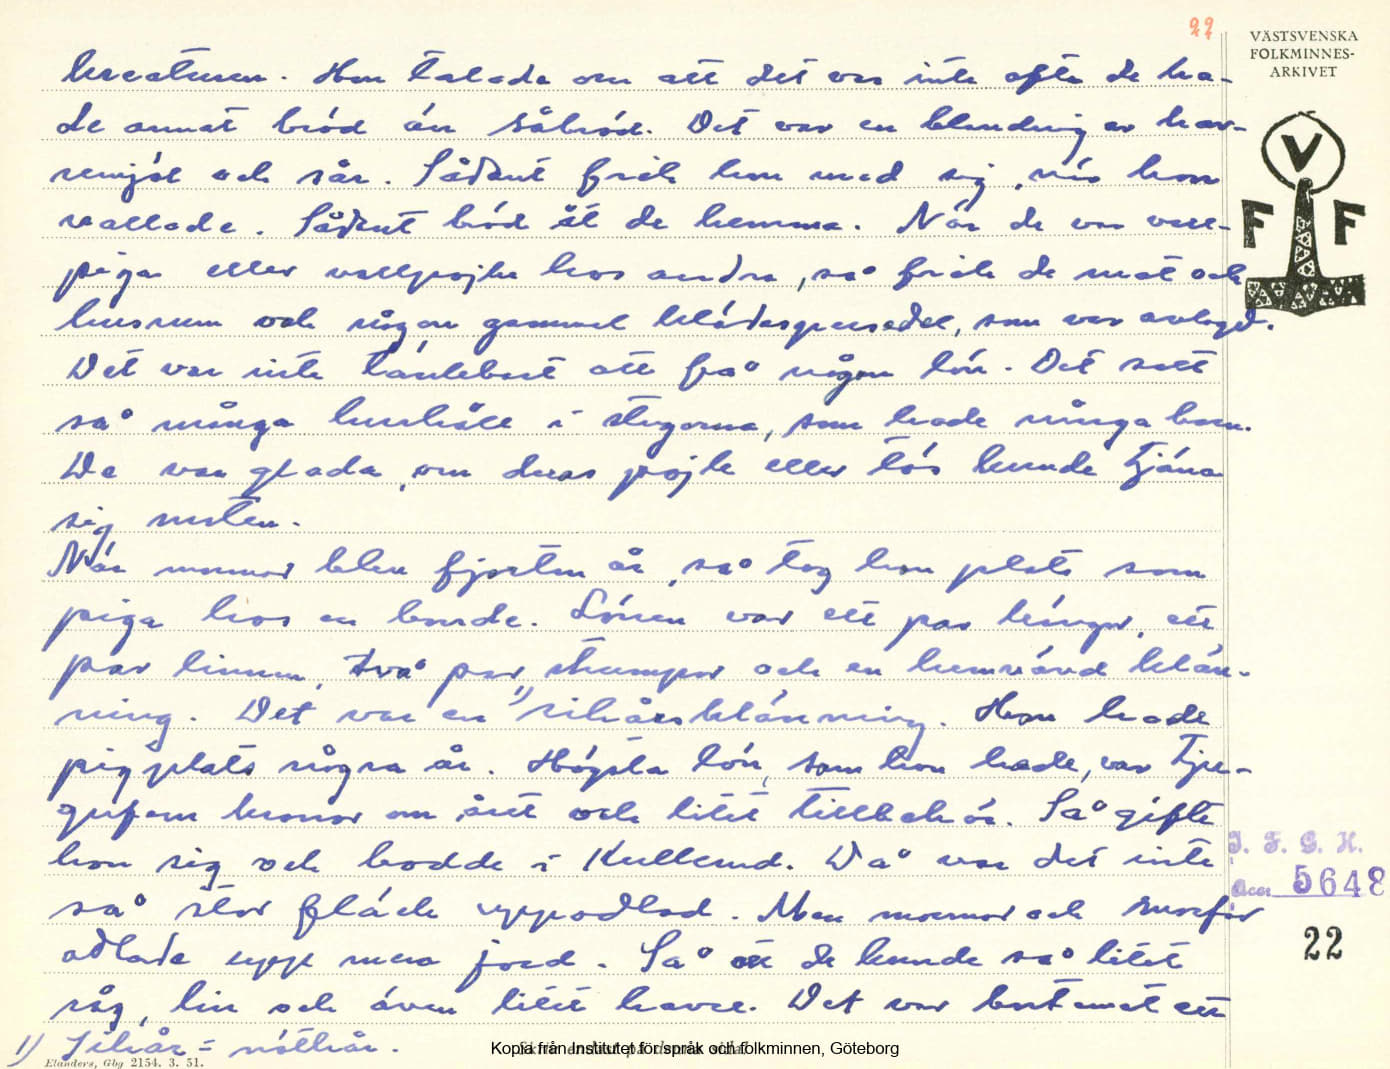 22
VÄSTSVENSKA
FOLKMINNES-
ARKIVET
kreaturen. Hon talade om att det var inte ofta de ha-
de annat bröd än såbröd. Det var en blandning av hav-
remjöl och sår. Sådant fick hon med sig, när hon
vallade. Sådant bröd åt de hemma. När de var vall-
piga eller vallpojke hos andra, så fick de mat och
husrum och någon gammal klädespersedel, som var avlagd.
Det var inte tänkbart att få någon lön. Det satt
så många hushåll i stugorna, som hade många barn.
De var glada, om deras pojk eller tös kunde tjäna
sig maten.
När mormor blev fjorton år, så tog hon plats som
piga hos en bonde. Lönen var ett par kängor, ett
par linnen, två par strumpor och en hemvävd klän-
ning. Det var en 1) silhårsklänning. Hon hade
pigplats några år. Högsta lön, som hon hade, var tju-
gufem kronor om året och litet tillbehör. Så gifte
hon sig och bodde i Kullemd. Då var det inte
så stor fläck uppodlad. Men mormor och morfar
odlade upp mera jord. Så att de kunde så litet
råg, lin och även litet havre. Det var bortemot ett
1) Silhår = nöthår.
V
F F
I. F. G. H.
Acc. 5648
22
Elanders, Gbg 2154. 3. 51.
Kopia från Institutet för språk och folkminnen, Göteborg